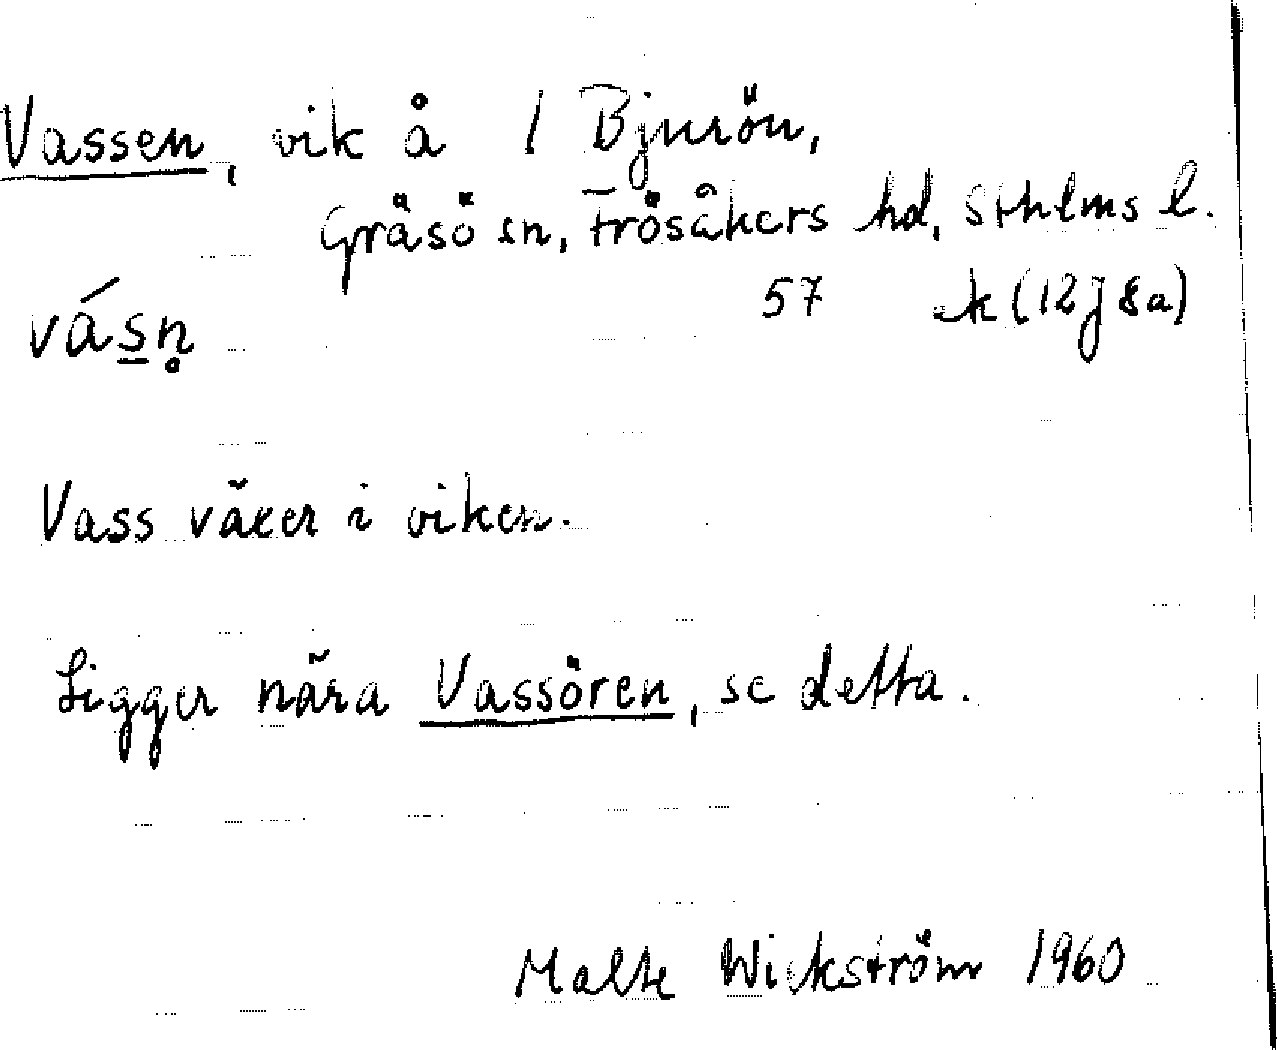 Vassen, vik å 1 Bjurön,
Gräsö sn, Frösåkers hd, Sthlms l.
vásn̥ 57 ek (12j 8a)
Vass växer i viken.
Ligger nära Vassören, se detta.
Malte Wickström 1960